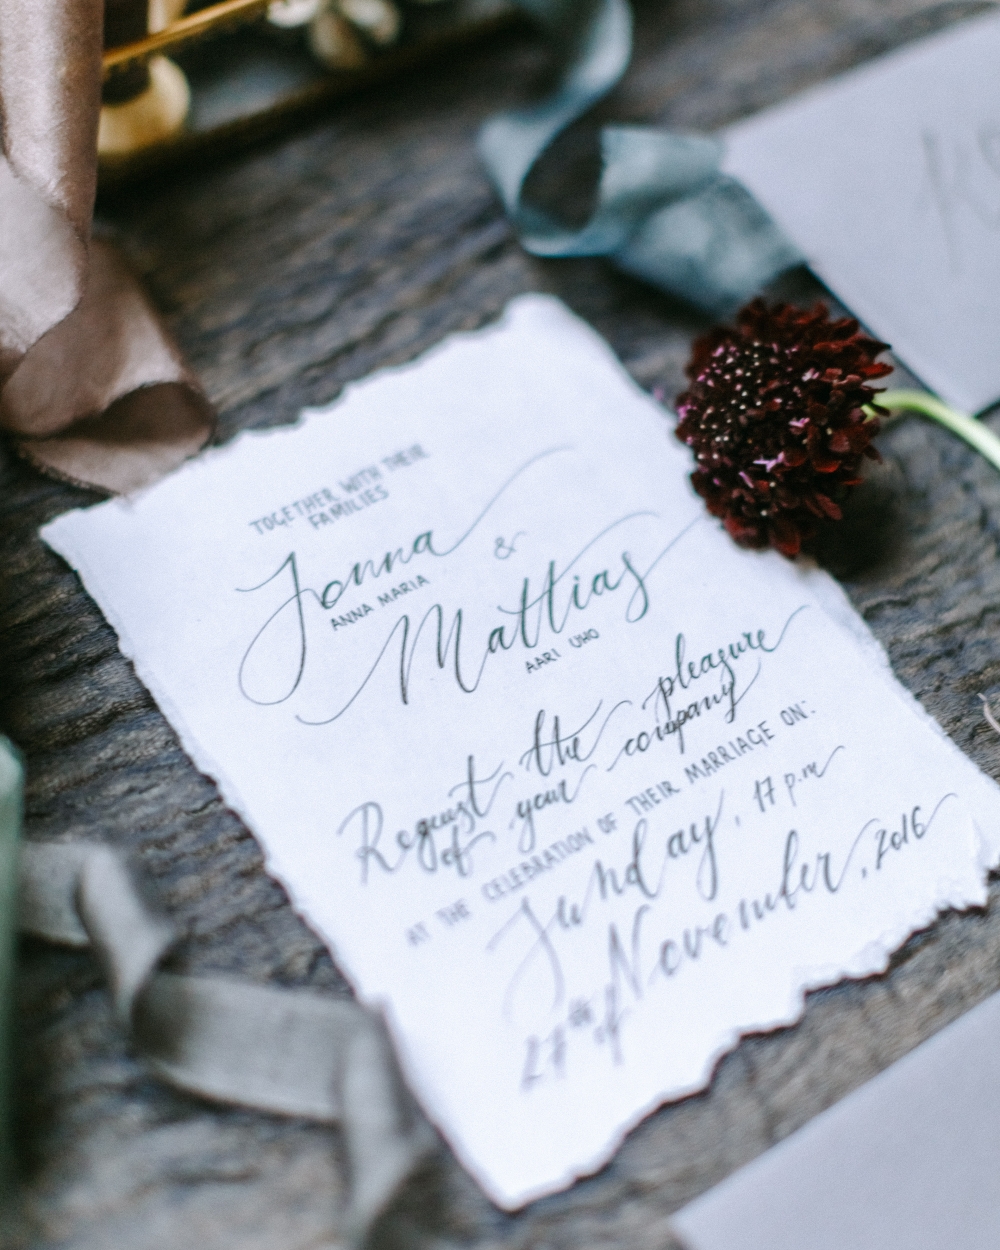 TOGETHER WITH THEIR
FAMILIES
Jonna &
ANNA MARIA
Mattias
AARI UHO
Request the pleasure
of your company
AT THE CELEBRATION OF THEIR MARRIAGE ON:
Sunday, 17 p.m
27th of November, 2016